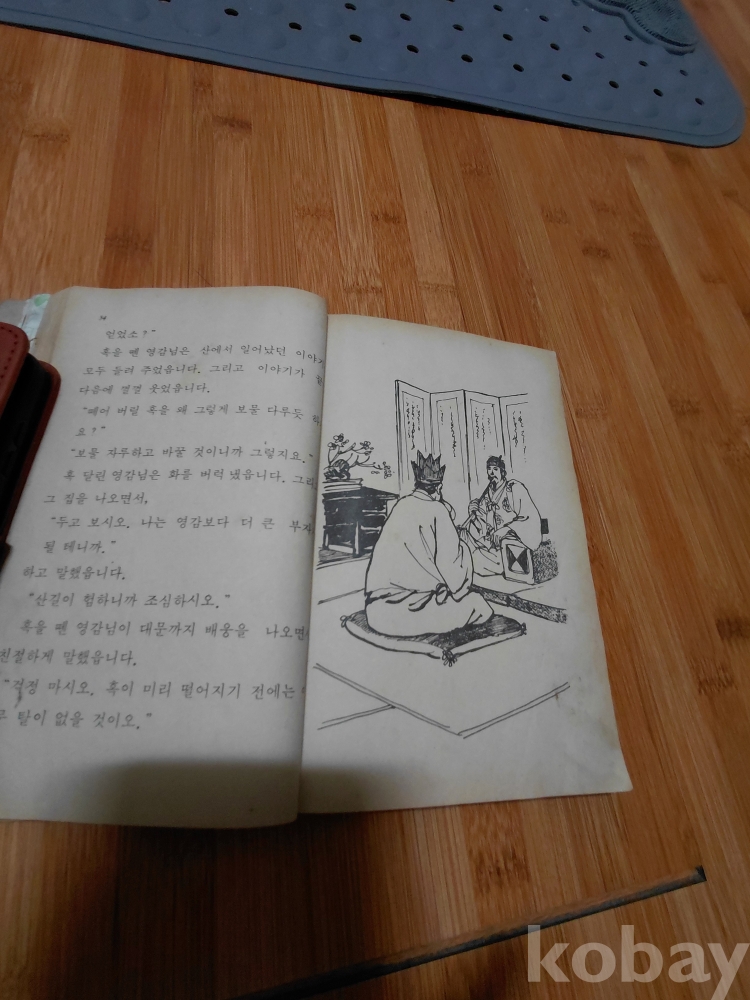 34
얻었소?"
혹을 뗀 영감님은 산에서 일어났던 이야기
모두 들려 주었읍니다. 그리고 이야기가
다음에 껄껄 웃었읍니다.
"떼어 버릴 혹을 왜 그렇게 보물 다루듯
요?"
"보물 자루하고 바꿀 것이니까 그렇지요."
혹 달린 영감님은 화를 버럭 냈읍니다. 그리
그 집을 나오면서,
"두고 보시오. 나는 영감보다 더 큰 부자
될 테니까."
하고 말했읍니다.
"산길이 험하니까 조심하시오."
혹을 뗀 영감님이 대문까지 배웅을 나오면
친절하게 말했읍니다.
"걱정 마시오. 혹이 미리 떨어지기 전에는
탈이 없을 것이오."
kobay